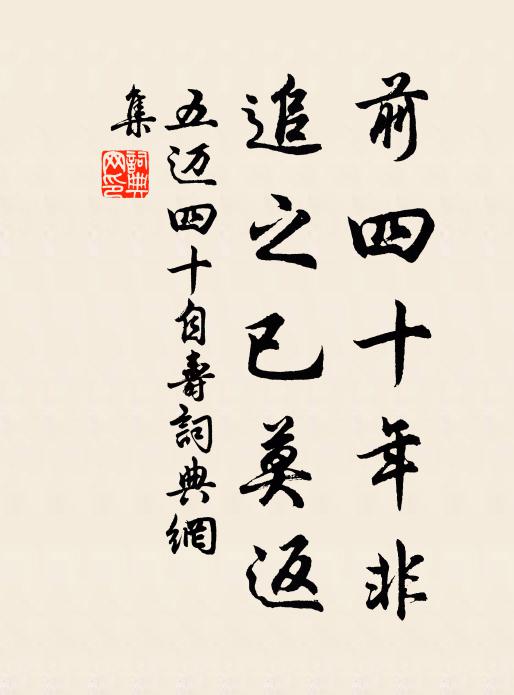 前四十年非
追之已莫返
五迈四十自壽詞典網
集
詞典
网印